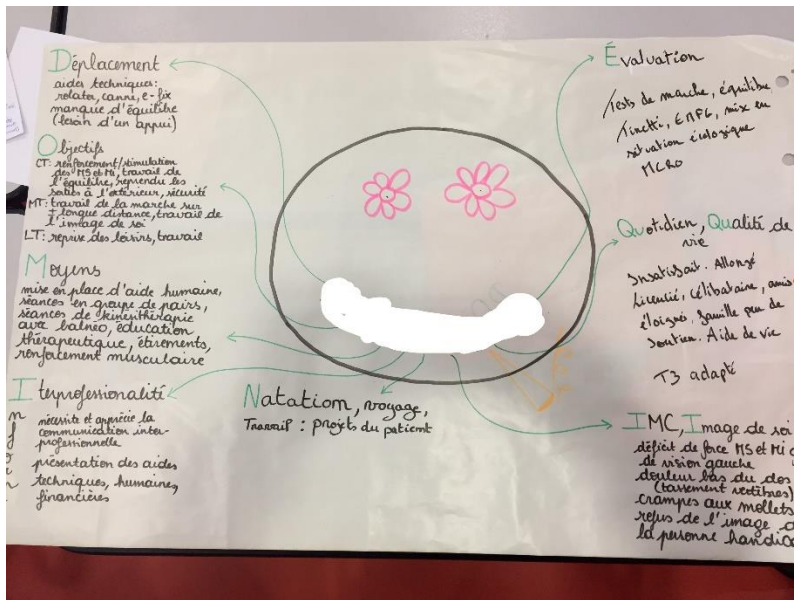 Déplacement
aides techniques:
rolator, canne, e-fix
manque d'équilibre
(besoin d'un appui)
Objectifs
CT: renforcement/stimulation
des MS et Mi, travail de
l'équilibre, reprendre les
sorties à l'extérieur, sécurité
MT: travail de la marche sur
+ longue distance, travail de
l'image de soi
LT: reprise des loisirs, travail
Moyens
mise en place d'aide humaine,
séances en groupe de pairs,
séances de kinésithérapie
avec balnéo, éducation
thérapeutique, étirements,
renforcement musculaire
Interprofessionalité
nécessite et apprécie la
communication inter-
professionnelle
présentation des aides
techniques, humaines,
financières
Natation, voyage,
Travail : projets du patient
Évaluation
Tests de marche, équilibre
Tinetti, mise en
situation écologique
MCRO
Quotidien, Qualité de
vie
Insatisfait. Allongé
Licencié, célibataire, amis
éloignés, famille peu de
soutien. Aide de vie
T3 adapté
IMC, Image de soi
déficit de force MS et Mi
de vision gauche
douleur bas du dos
(tassement vertèbres)
crampes aux mollets
refus de l'image
la personne handic